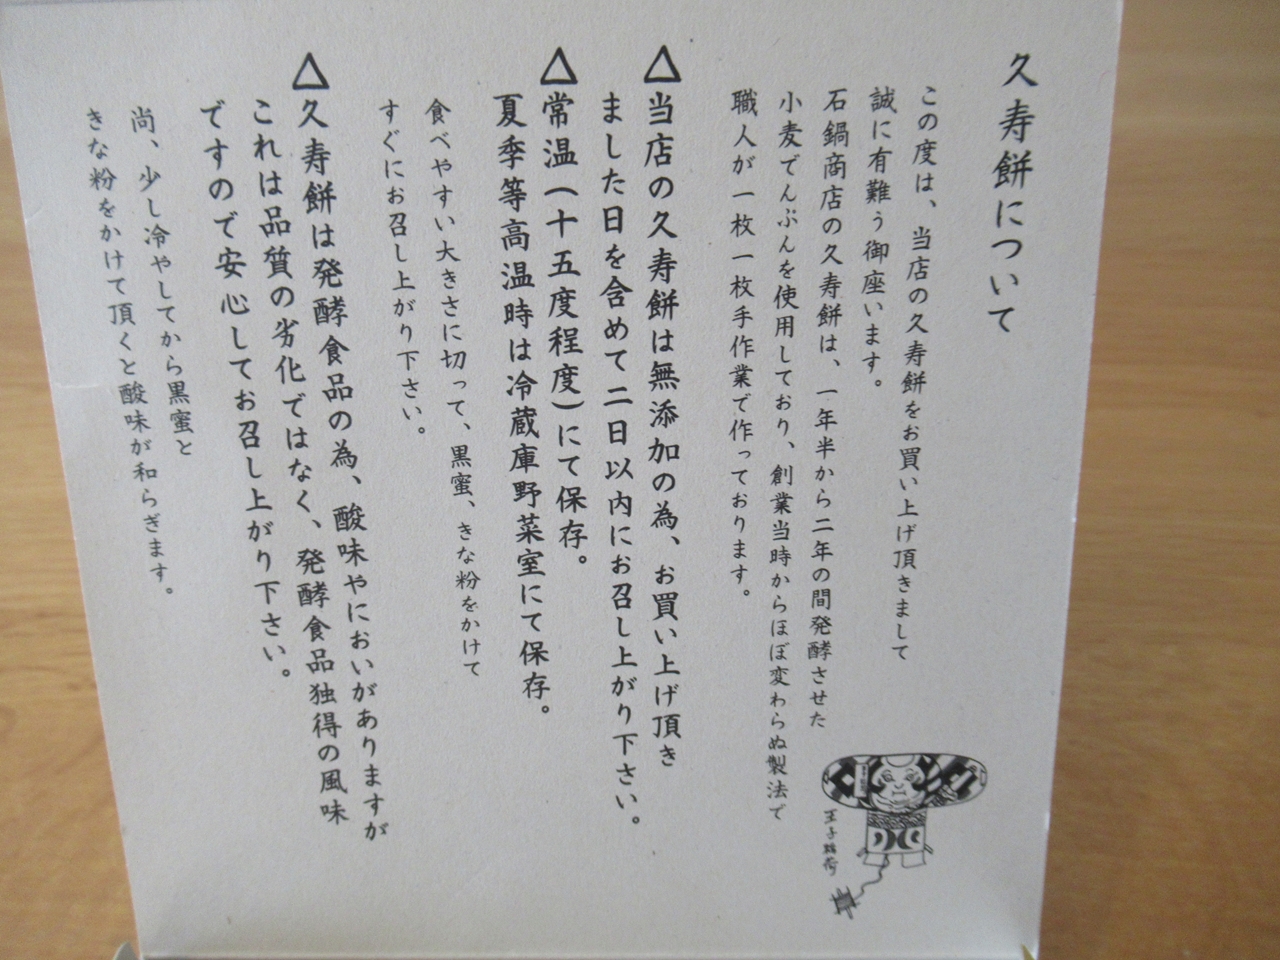 久寿餅について
この度は、当店の久寿餅をお買い上げ頂きまして
誠に有難う御座います。
石鍋商店の久寿餅は、一年半から二年の間発酵させた
小麦でんぷんを使用しており、創業当時からほぼ変わらぬ製法で
職人が一枚一枚手作業で作っております。
△当店の久寿餅は無添加の為、お買い上げ頂き
ました日を含めて二日以内にお召し上がり下さい。
△常温(十五度程度)にて保存。
夏季等高温時は冷蔵庫野菜室にて保存。
食べやすい大きさに切って、黒蜜、きな粉をかけて
すぐにお召し上がり下さい。
△久寿餅は発酵食品の為、酸味やにおいがありますが
これは品質の劣化ではなく、発酵食品独得の風味
ですので安心してお召し上がり下さい。
尚、少し冷やしてから黒蜜と
きな粉をかけて頂くと酸味が和らぎます。
王子稲荷